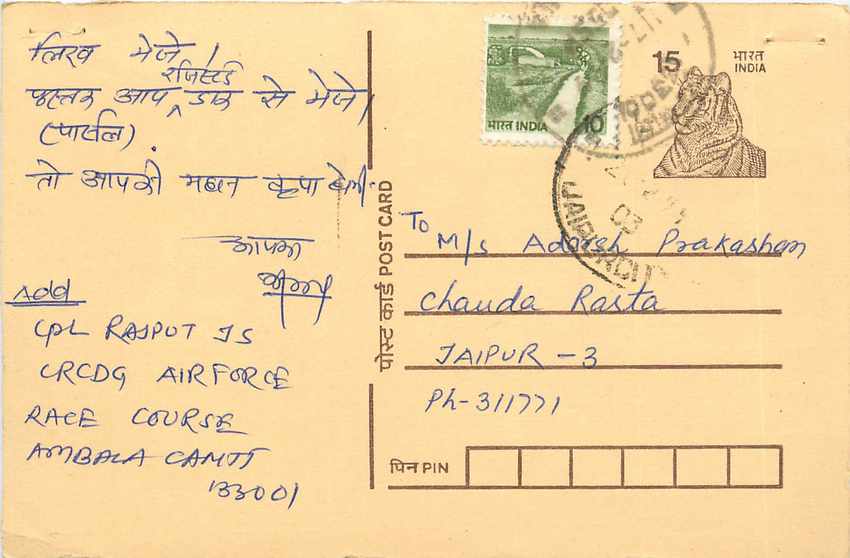 लिख भेजे।
रजिस्टर्ड
पुस्तक आप ‸ डाक से भेजे।
(पार्सल)
तो आपकी महान कृपा होगी।
आपका
Add
CPL RAJPUT JS
CRCDG AIRFORCE
RACE COURSE
AMBALA CANTT
133001
पोस्ट कार्ड POST CARD
भारत INDIA 10
15
भारत
INDIA
JAIPUR CITY
03
To
M/s Adarsh Prakashan
Chauda Rasta
JAIPUR - 3
Ph-311771
पिन PIN